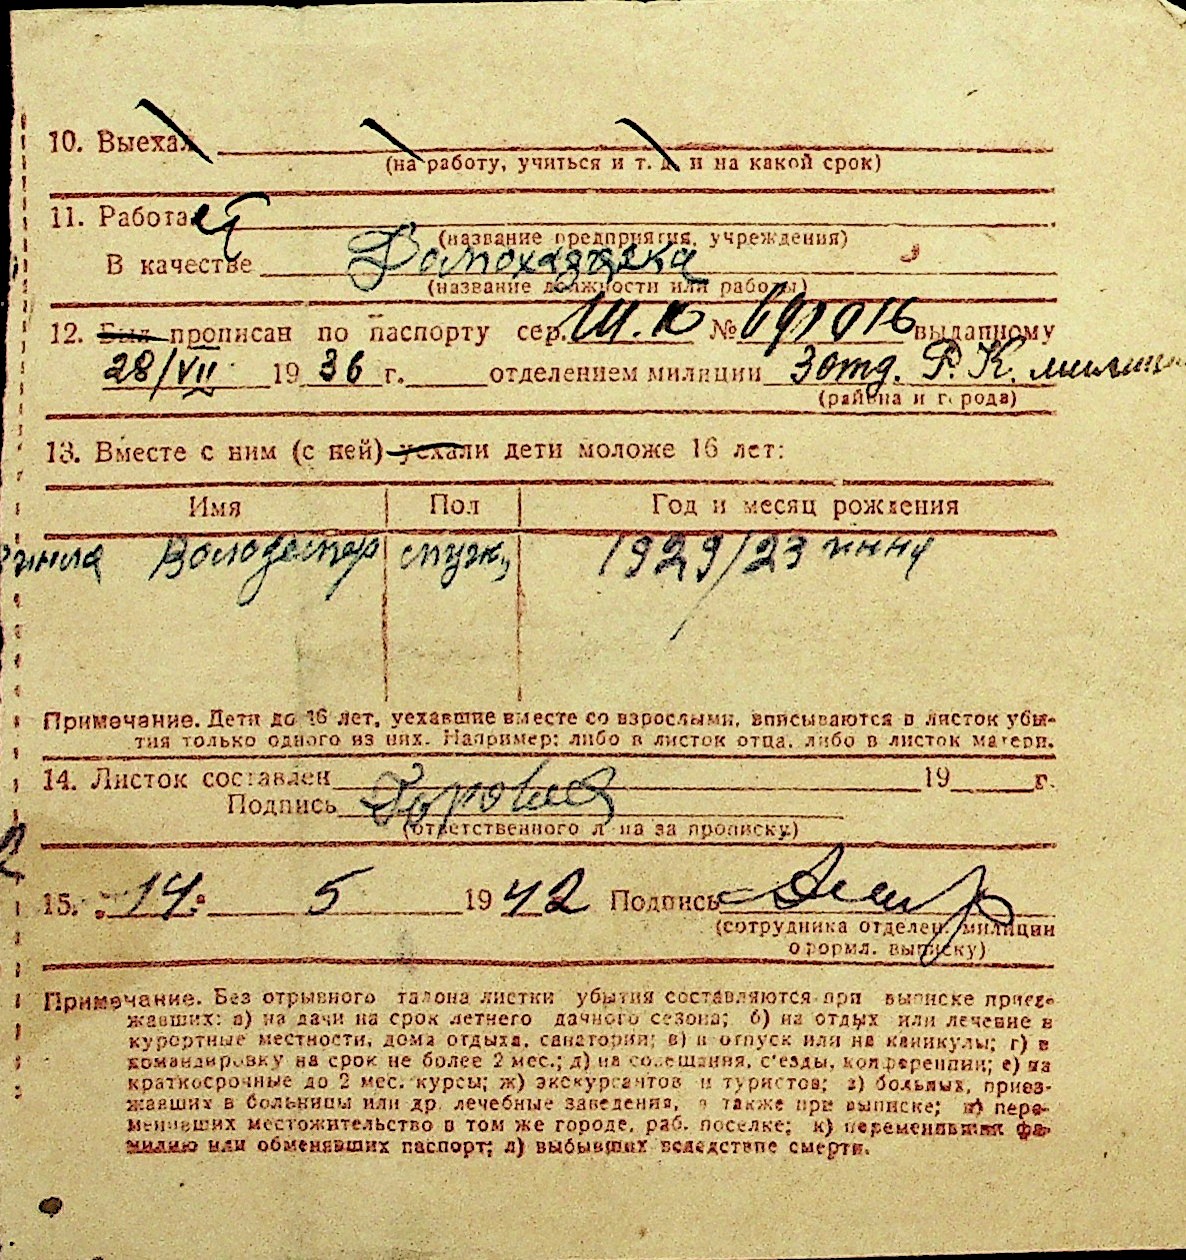 10. Выехал
(на работу, учиться и т. д. и на какой срок)
11. Работает
(название предприятия, учреждения)
В качестве Домохазяека
(название должности или работы)
12. Был прописан по паспорту сер. № выданному
28/VII 1936 г. отделением милиции 3 отд. Р. К. милиции
(района и города)
13. Вместе с ним (с ней) уехали дети моложе 16 лет:
Имя Пол Год и месяц рождения
муж. 1929/23
Примечание. Дети до 16 лет, уехавшие вместе со взрослыми, вписываются в листок убы-
тия только одного из них. Например: либо в листок отца, либо в листок матери.
14. Листок составлен 19 г.
Подпись
(ответственного лица за прописку)
15. „14“ 5 1942 Подпись
(сотрудника отделен. милиции
оформл. выписку)
Примечание. Без отрывного талона листки убытия составляются при выписке приез-
жавших: а) на дачи на срок летнего дачного сезона; б) на отдых или лечение в
курортные местности, дома отдыха, санатории; в) в отпуск или на каникулы; г) в
командировку на срок не более 2 мес.; д) на совещания, с'езды, конференции; е) на
краткосрочные до 2 мес. курсы; ж) экскурсантов и туристов; з) больных, приез-
жавших в больницы или др. лечебные заведения, а также при выписке; и) пере-
менивших местожительство в том же городе, раб. поселке; к) переменивших фа-
милию или обменявших паспорт; л) выбывших вследствие смерти.